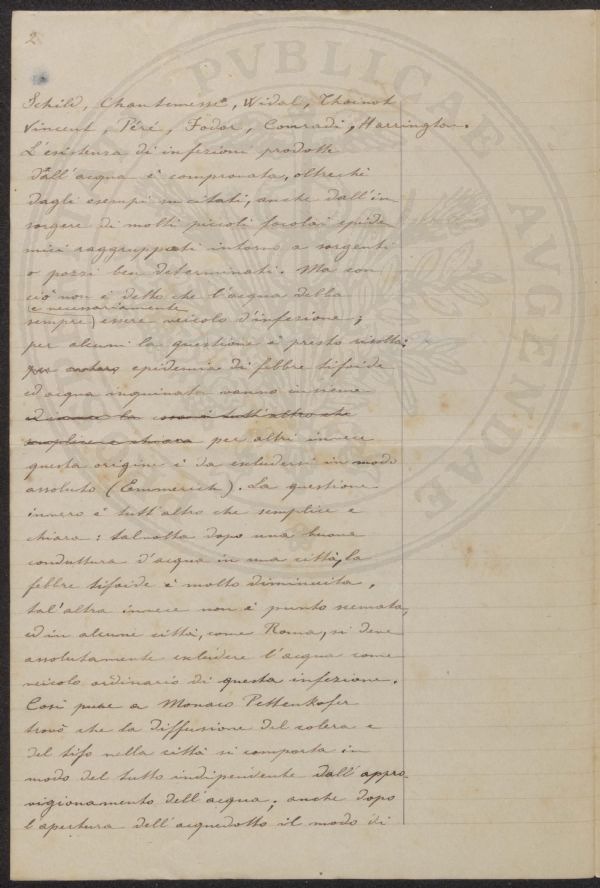 2
Schild, Chantemesse, Widal, Thoinot
Vincent, Péré, Fodor, Conradi, Harrington.
L'esistenza di infezioni prodotte
dall'acqua è comprovata, oltrechè
dagli esempi su citati, anche dall'in
sorgere di molti piccoli focolai epide
mici raggruppati intorno a sorgenti
o pozzi ben determinati. Ma con
ciò non è detto che l'acqua debba
(e necessariamente
sempre) essere veicolo d'infezione;
per alcuni la questione è presto risolta:
epidemia di febbre tifoide
ed acqua inquinata vanno insieme
la cosa è tutt'altro che
semplice e chiara per altri invece
questa origine è da escludersi in modo
assoluto (Emmerich). La questione
invero è tutt'altro che semplice e
chiara: talvolta dopo una buona
conduttura d'acqua in una città, la
febbre tifoide è molto diminuita,
tal'altra invece non è punto scemata,
ed in alcune città, come Roma, si deve
assolutamente escludere l'acqua come
veicolo ordinario di questa infezione.
Così pure a Monaco Pettenkofer
trovò che la diffusione del colera e
del tifo nella città si comporta in
modo del tutto indipendente dall'appro-
vigionamento dell'acqua; anche dopo
l'apertura dell'acquedotto il modo di
PVBLICAE
AVGENDAE